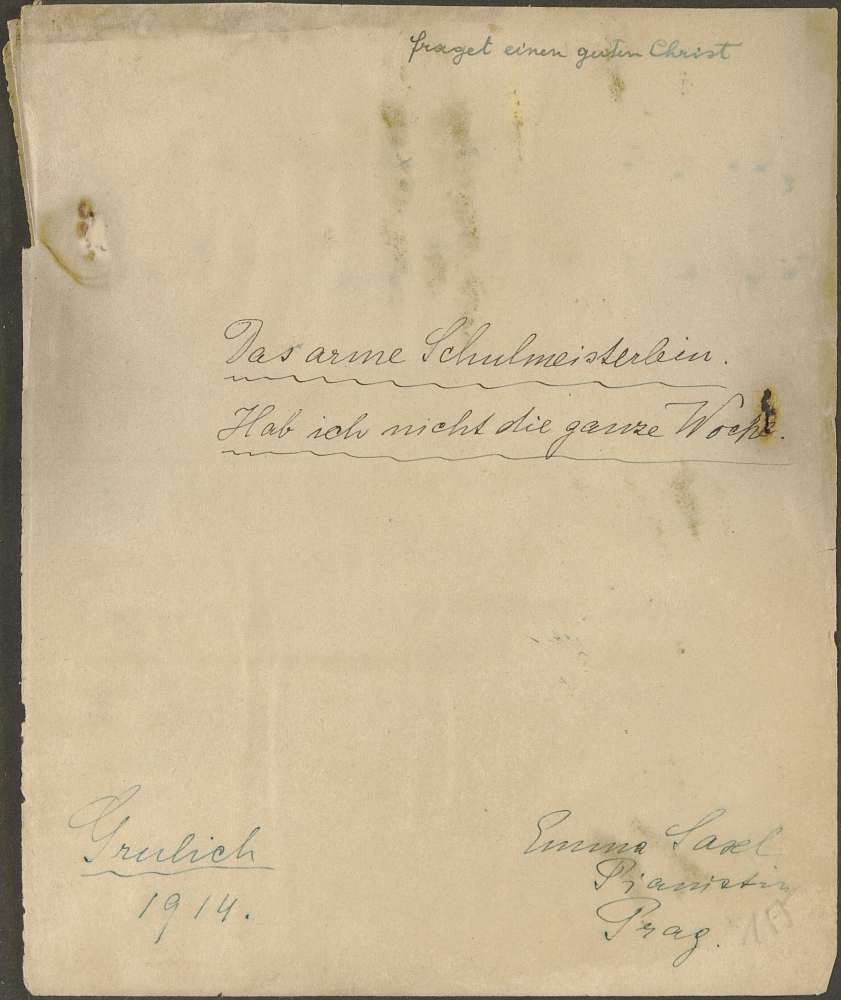 fraget einen guten Christ
Das arme Schulmeisterlein.
Hab ich nicht die ganze Woche.
Grulich
1914.
Emma Saxl
Pianistin
Prag.